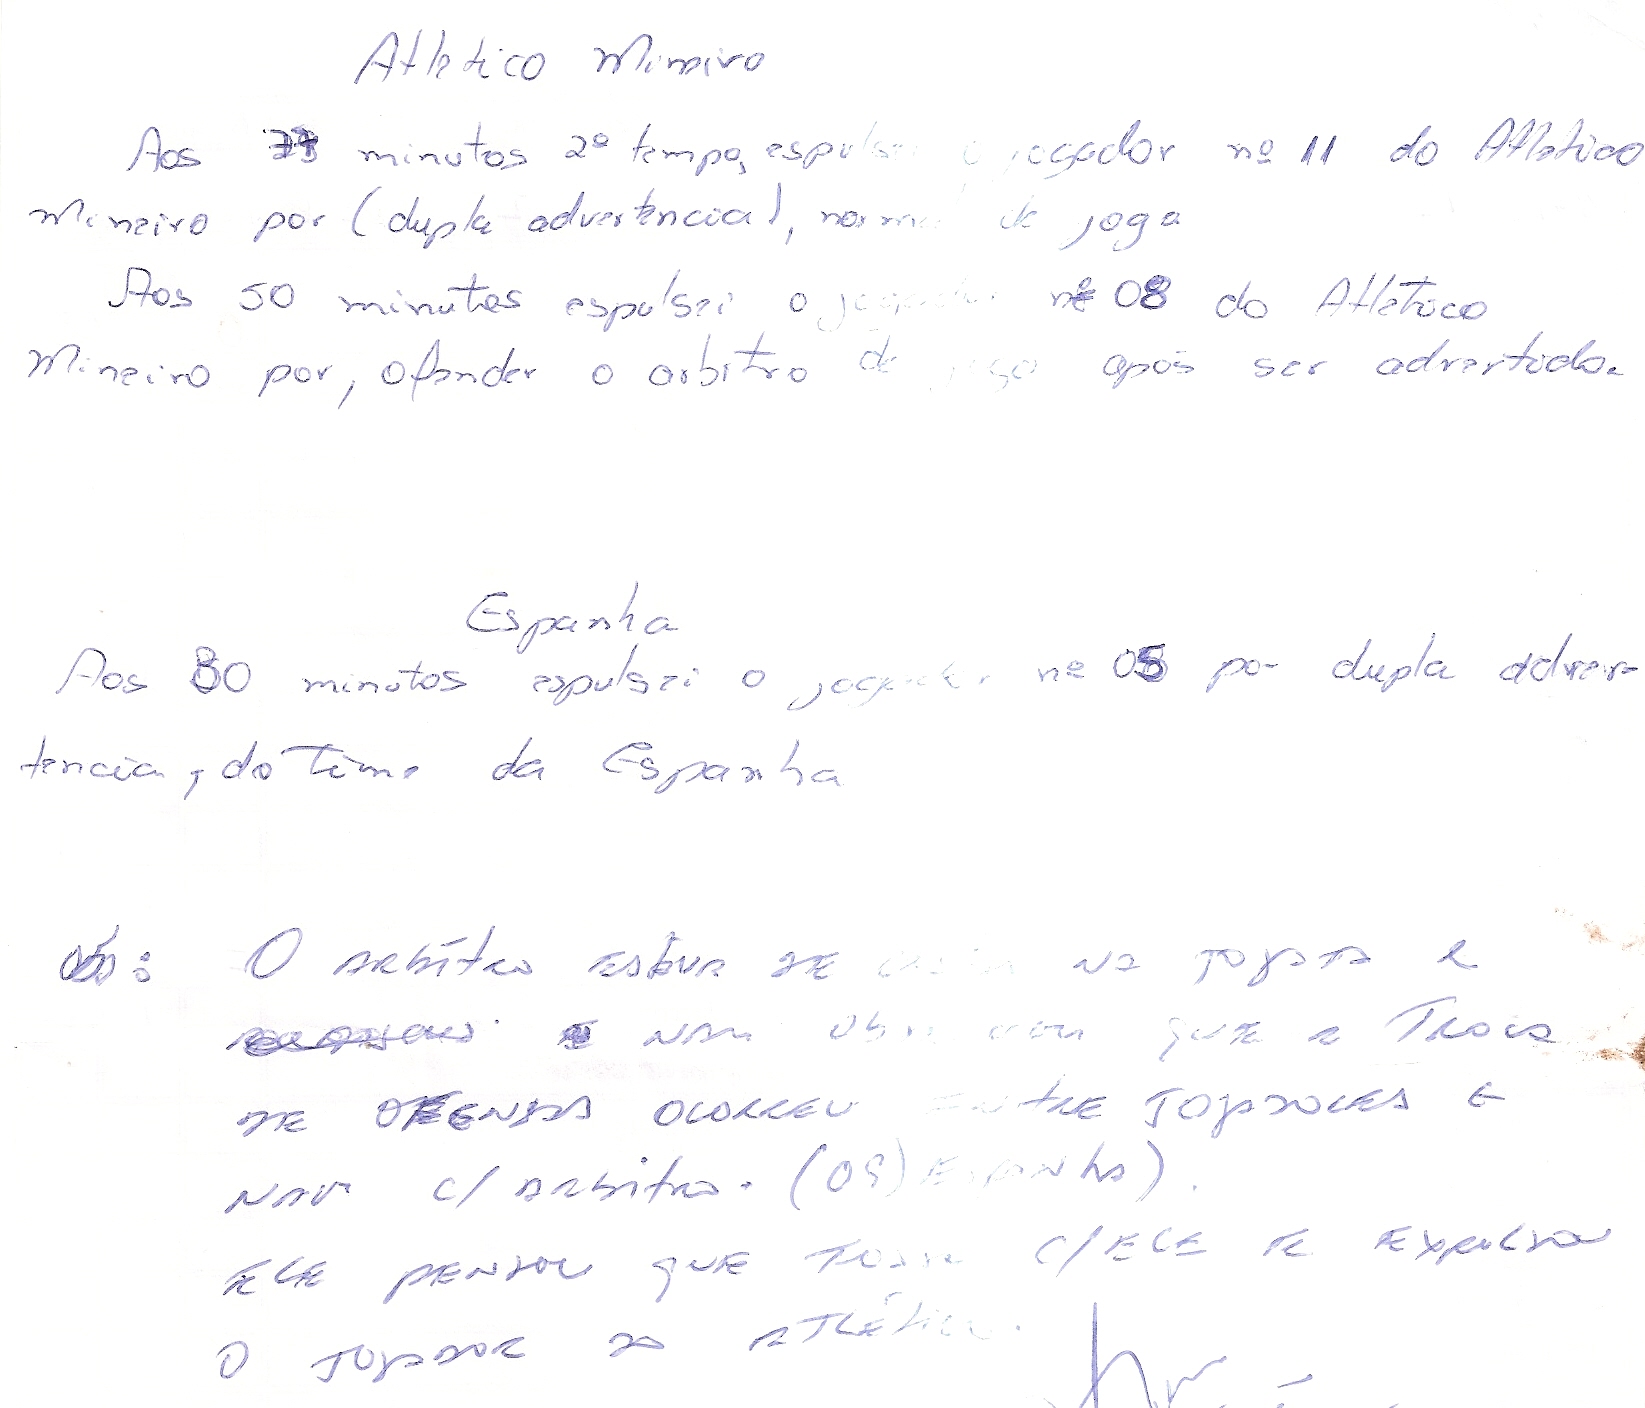 Atletico Mineiro
Aos minutos 2º tempo, espulsei o jogador nº 11 do Atletico
Mineiro por (dupla advertencia), normal de joga
Aos 50 minutos espulsei o jogador nº 08 do Atletico
Mineiro por, ofender o arbitro de jogo após ser advertido.
Espanha
Aos 30 minutos espulsei o jogador nº 05 por dupla adver-
tencia, do Time da Espanha
Obs: O ARBITRO ESTAVA DE NA JOGADA E
NÃO QUE A TROCA
DE OFENSAS OCORREU ENTRE JOGADORES E
NÃO C/ ARBITRO. ESPANHA).
ELE PENSOU QUE FOSSE C/ ELE E EXPULSOU
O JOGADOR DO ATLÉTICO.